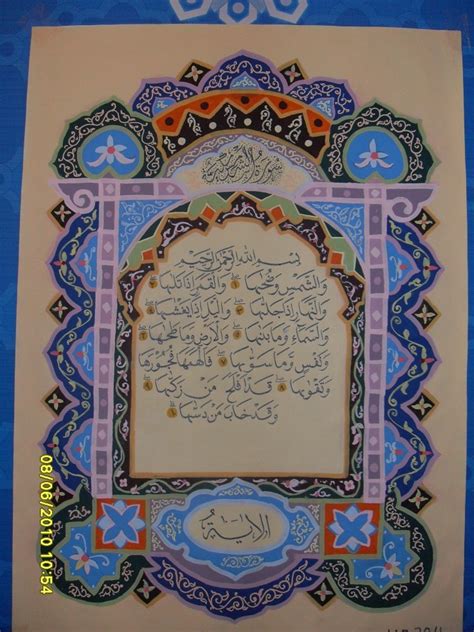 سورة الشمس
بسم الله الرحمن الرحيم
والشمس وضحىها ١ والقمر اذا تلىها ٢
والنهار اذا جلىها ٣ واليل اذا يغشىها ٤
والسماء وما بنىها ٥ والارض وما طحىها ٦
ونفس وما سوىها ٧ فالهمها فجورها
وتقوىها ٨ قد افلح من زكىها ٩
وقد خاب من دسىها ١٠
الاية
08/06/2010 10:54